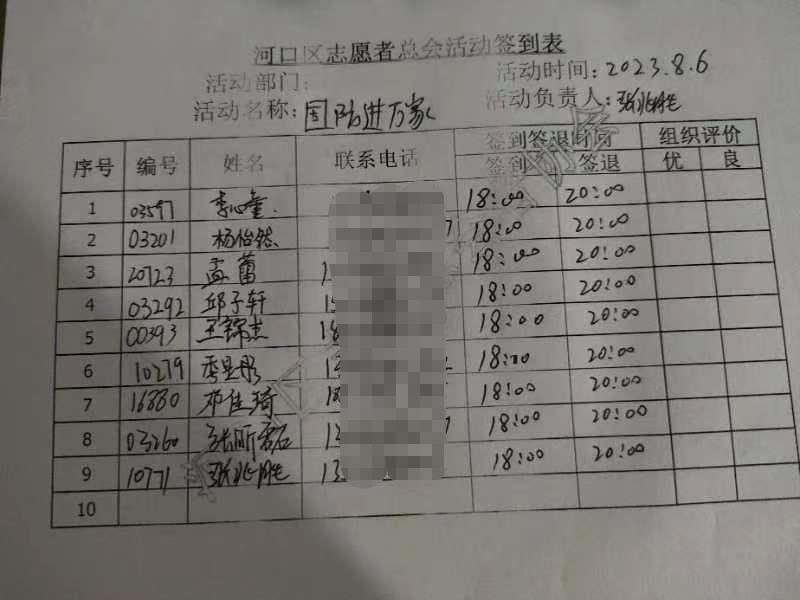 河口区志愿者总会活动签到表
活动部门: 活动时间: 2023.8.6
活动名称: 国防进万家 活动负责人: 张兆胜
序号 编号 姓名 联系电话 签到签退时间 组织评价
签到 签退 优 良
1 03597 李心童 18:00 20:00
2 03201 杨怡然 18:00 20:00
3 20723 孟蕾 18:00 20:00
4 03292 邱子轩 18:00 20:00
5 00393 王锦杰 18:00 20:00
6 10279 18:00 20:00
7 16880 邓佳琦 18:00 20:00
8 03260 18:00 20:00
9 10771 张兆胜 13 18:00 20:00
10